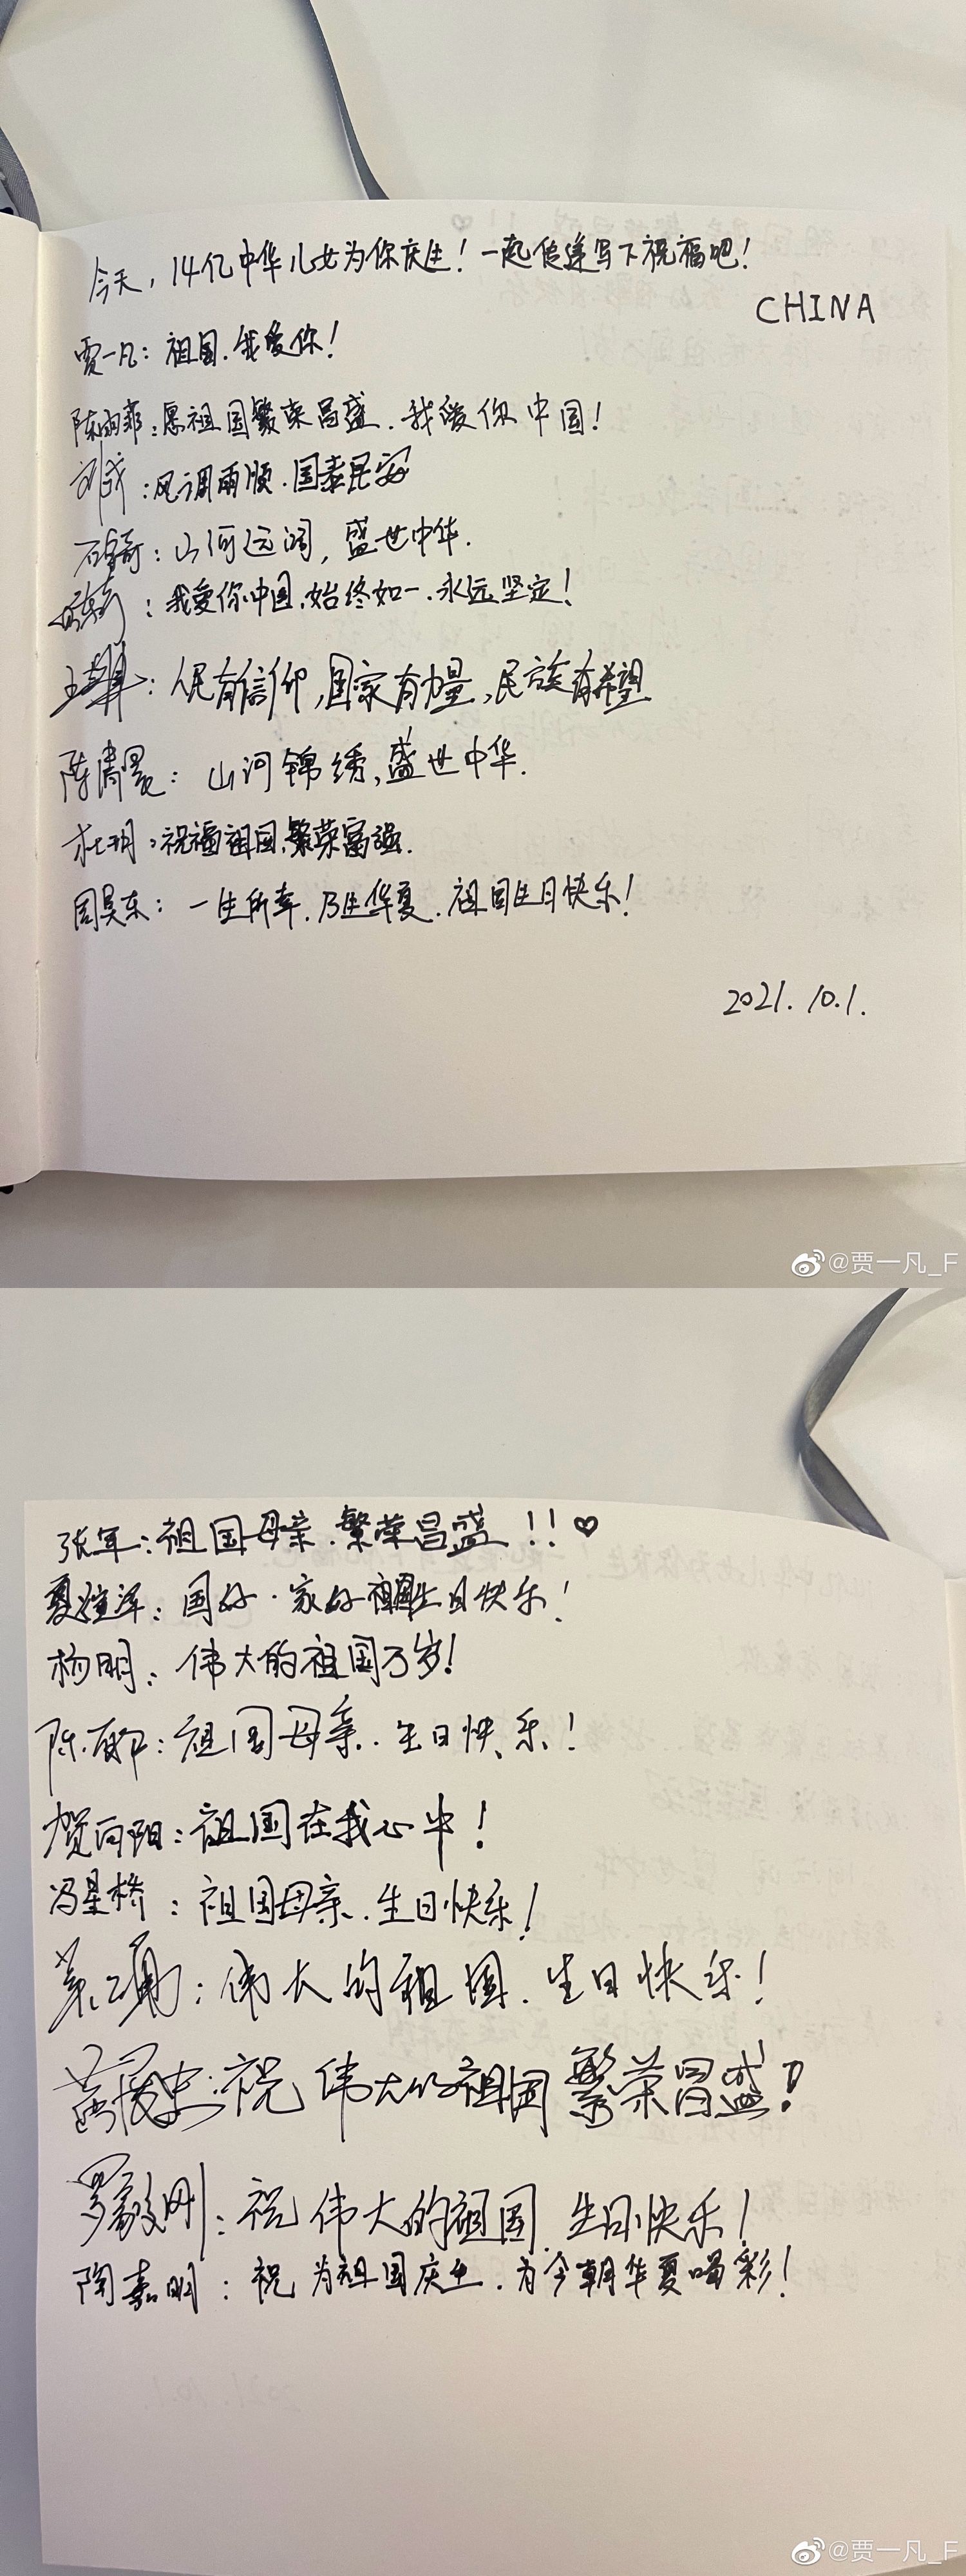 今天，14亿中华儿女为你庆生！一起传递写下祝福吧！
CHINA
贾一凡：祖国.我爱你！
陈雨菲：愿祖国繁荣昌盛.我爱你中国！
刘成：风调雨顺.国泰民安
石宇奇：山河远阔，盛世中华.
：我爱你中国,始终如一.永远坚定！
：人民有信仰,国家有力量,民族有希望
陈清晨：山河锦绣,盛世中华.
杜玥：祝福祖国,繁荣富强.
周昊东：一生所幸.乃生华夏.祖国生日快乐！
2021.10.1.
@贾一凡_F
张军：祖国母亲.繁荣昌盛！！♡
夏煊泽：国好·家好祖国生日快乐！
杨明：伟大的祖国万岁！
陈郁：祖国母亲.生日快乐！
贺向阳：祖国在我心中！
冯星桥：祖国母亲.生日快乐！
：伟大的祖国.生日快乐！
：祝伟大的祖国繁荣昌盛！
罗毅刚：祝伟大的祖国.生日快乐！
陶嘉明：祝为祖国庆生.为今朝华夏喝彩！
@贾一凡_F